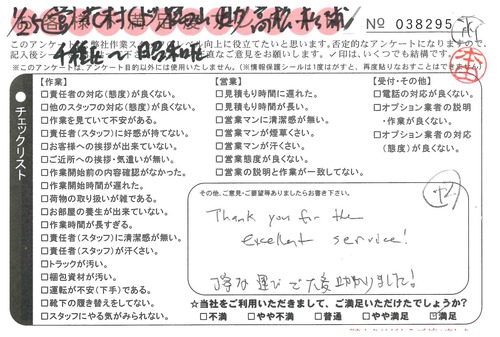 № 038295
このアンケートは弊社作業スタッフのレベル向上に役立てたいと思います。否定的なアンケートになりますので、
記入後シールを貼って
直にご意見をお願いします。✓印は、いくつでも結構です。
※このアンケートは、アンケート目的以外には使用いたしません。(※情報保護シールは1度はがすと、再度貼りなおすことはできません)
チェックリスト
【作業】
□責任者の対応(態度)が良くない。
□他のスタッフの対応(態度)が良くない。
□作業を見ていて不安がある。
□責任者(スタッフ)に好感が持てない。
□お客様への挨拶が出来ていない。
□ご近所への挨拶・気遣いが無い。
□作業開始前の内容確認がなかった。
□作業開始時間が遅れた。
□荷物の取り扱いが雑である。
□お部屋の養生が出来ていない。
□作業時間が長すぎる。
□責任者(スタッフ)に清潔感が無い。
□責任者(スタッフ)が汗くさい。
□トラックが汚い。
□梱包資材が汚い。
□運転が不安(下手)である。
□靴下の履き替えをしてない。
□スタッフにやる気がみられない。
【営業】
□見積もり時間に遅れた。
□見積もり時間が長い。
□営業マンに清潔感が無い。
□営業マンが煙草くさい。
□営業マンが汗くさい。
□営業態度が良くない。
□営業の説明と作業が一致してない。
【受付・その他】
□電話の対応が良くない。
□オプション業者の説明
・作業が良くない。
□オプション業者の対応
(態度)が良くない。
その他、ご意見・ご要望等ありましたらお書き下さい。
Thank you for the
excellent service!
丁寧な運びで大変助かりました!
☆当社をご利用いただきまして、ご満足いただけたでしょうか?
□不満 □やや不満 □普通 □やや満足 ☑満足